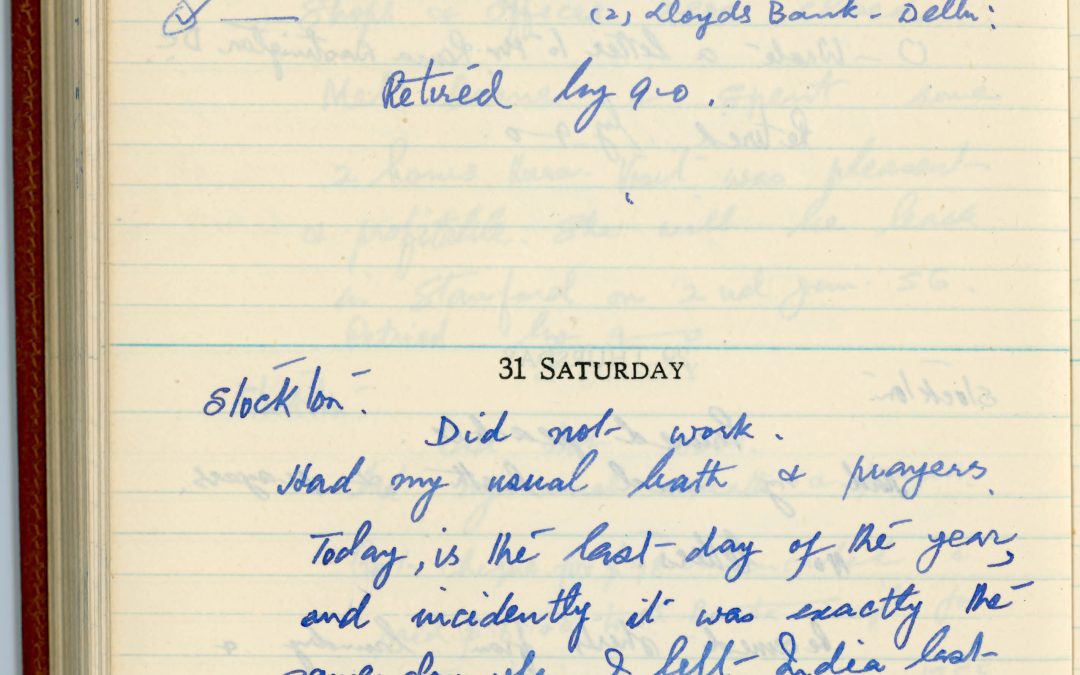 (2) Lloyds Bank - Delhi:
Retired by 9-0.
31 SATURDAY
Stockton.
Did not work.
Had my usual bath & prayers.
Today, is the last day of the year,
and incidently it was exactly the
same day I left India last-